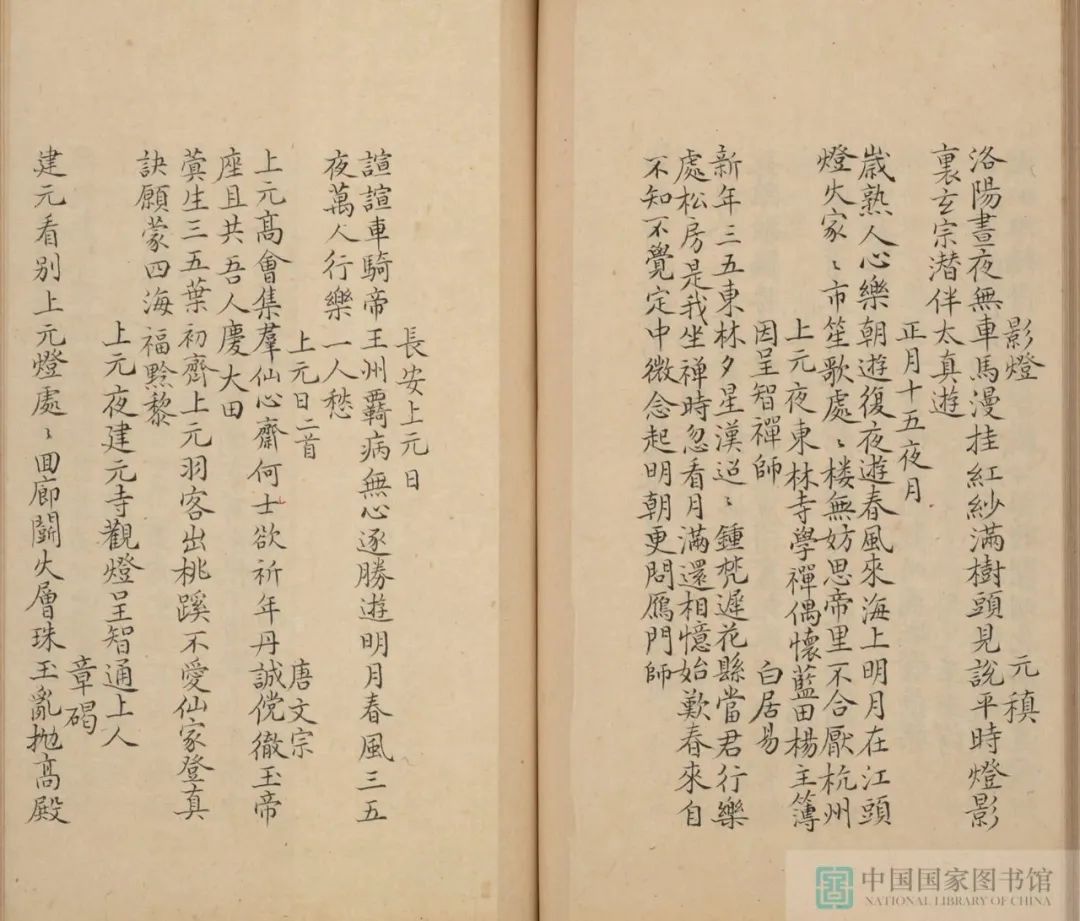 影燈 元稹
洛陽晝夜無車馬漫挂紅紗滿樹頭見說平時燈影
裏玄宗潜伴太真遊
正月十五夜月
歳熟人心樂朝遊復夜遊春風來海上明月在江頭
燈火家〻市笙歌處〻楼無妨思帝里不合厭杭州
上元夜東林寺學禪偶懷藍田楊主簿
因呈智禪師 白居易
新年三五東林夕星漢迢〻鍾梵遲花縣當君行樂
處松房是我坐禅時忽看月滿還相憶始歎春來自
不知不覺定中微念起明朝更問鴈門師
長安上元日
諠諠車騎帝王州覊病無心逐勝遊明月春風三五
夜萬人行樂一人愁
上元日二首 唐文宗
上元髙會集羣仙心齋何士欲祈年丹誠儻徹玉帝
座且共吾人慶大田
蓂生三五葉初齊上元羽客出桃蹊不愛仙家登真
訣願蒙四海福黔黎
上元夜建元寺觀燈呈智通上人
章碣
建元看别上元燈處〻回廊鬪火層珠玉亂抛髙殿
中国国家图书馆
NATIONAL LIBRARY OF CHINA